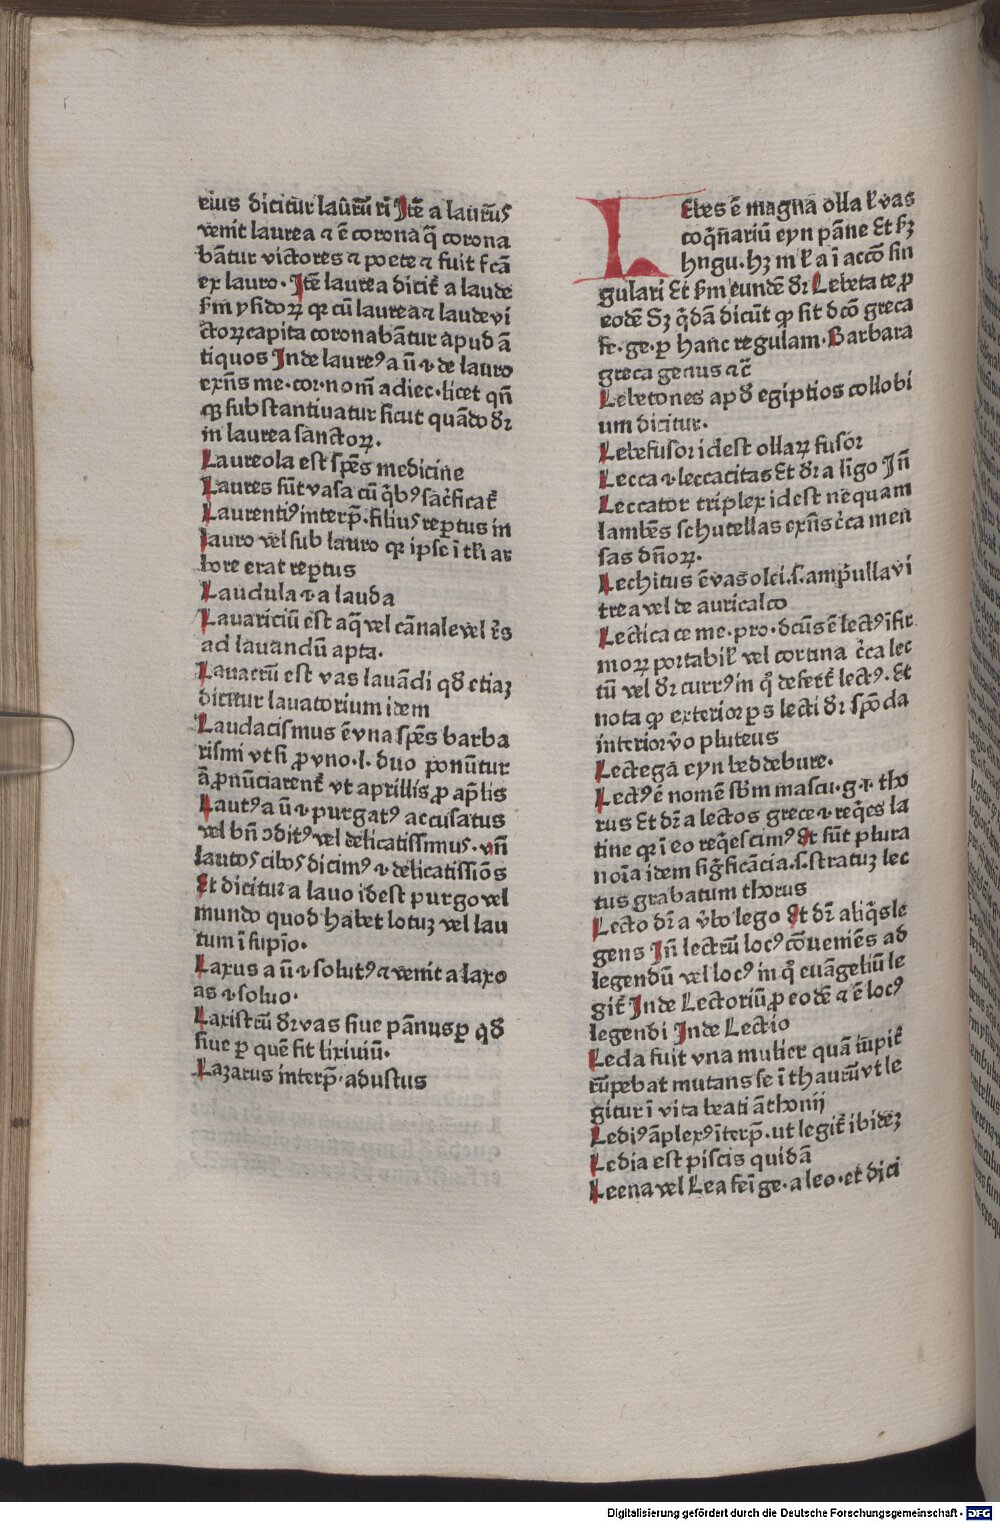 eius dicitur laūrū ri Jtē a laurus
venit laurea ⁊ ē corona q̄ corona
bātur victores ⁊ poete ⁊ fuit fcā
ex lauro · Jtē laurea dicit̄ a laude
ẜm ysidoꝝ qꝛ cū laurea ⁊ laude vi
ctoꝝ capita coronabātur apud ā
tiquos Jnde laureꝰ a ū ⁊ de lauro
exn̄s me · cor · nom̄ adiec · licet qn̄
qꝫ substantiuatur sicut quādo dr̄
in laurea sanctoꝝ.
Laureola est spēs medicine
Laures sūt vasa cū q̄bꝰ sac̄ficat̄
Laurentiꝰ interp̄ · filius reꝑtus in
lauro vel sub lauro qꝛ ipse ī tli ar
bore erat reꝑtus
Laudula ⁊ a lauda
Lauariciū est aq̄ vel cānale vel ē̄s
ad lauandū apta.
Lauacrū est vas lauādi qd̄ etiaꝫ
dicitur lauatorium idem
Laudacismus ē vna spēs barba
rismi vt si ꝓ vno · l · duo ponūtur
ā ꝓnūciarent̄ vt aprillis ꝓ ap̄lis
Lautꝰ a ū ⁊ purgatꝰ accusatus
vel bn̄ ↄditꝰ vel delicatissimus · vn̄
lautos cibos dicimꝰ ⁊ delicatissiōs
Et dicitur a lauo idest purgo vel
mundo quod habet lotuꝫ vel lau
tum ī supīo.
Laxus a ū ⁊ solutꝰ ⁊ venit a laxo
as ⁊ soluo.
Laxistrū dr̄ vas siue pānus ꝑ qd̄
siue ꝑ quē fit lixiuiū.
Lazarus interp̄ · adustus
Lebes ē magna olla ł vas
coq̄nariū eyn pāne Et hꝫ
lingu · hꝫ m ł a ī accō sin
gulari Et ẜm eundē dr̄ Lebeta te ꝓ
eodē Sꝫ q̄dā dicūt qꝙ sit dcō greca
fe · ge · ꝑ hanc regulam · Barbara
greca genus ⁊c̄
Lebetones apd̄ egiptios collobi
um dicitur.
Lebefusor idest ollaꝝ fusor
Lecca ⁊ leccacitas Et dr̄ a līgo Jn̄
Leccator triplex idest nequam
lambēs schutellas exn̄s c̄ca men
sas dn̄oꝝ.
Lechitus ē vas olei · s · ampulla vi
trea vel de auricalco
Lectica ce me · pro · dcūs ē lectꝰ īfir
moꝝ portabił vel cortina c̄ca lec
tū vel dr̄ currꝰ in q̊ defert̄ lectꝰ · Et
nota qꝙ exterior ꝑs lecti dr̄ spōda
interior v̊o pluteus
Lectega eyn beddebure.
Lectꝰ ē nomē sb̄m mascu · g · ⁊ tho
rus Et dr̄ a lectos grece ⁊ req̄es la
tine qꝛ ī eo req̄escimꝰ Et sūt plura
noīa idem sig̊ficācia · s · stratuꝫ lec
tus grabatum thorus
Lecto dr̄ a v̊bo lego Et dr̄ aliq̄s le
gens Jn̄ lectrū locꝰ cōueniēs ad
legendū vel locꝰ in q̊ euāgeliū le
git̄ Jnde Lectoriū ꝓ eodē ⁊ ē locꝰ
legendi Jnde Lectio
Leda fuit vna mulier quā iupit̄
rūpebat mutans se ī thaurū vt le
gitur ī vita beati āthonij
Lediꝰ āplexꝰ īterp̄ · ut legit̄ ibidēꝫ
Ledia est piscis quidā
Leena vel Lea feī ge · a leo · et dici
Digitalisierung gefördert durch die Deutsche Forschungsgemeinschaft - DFG